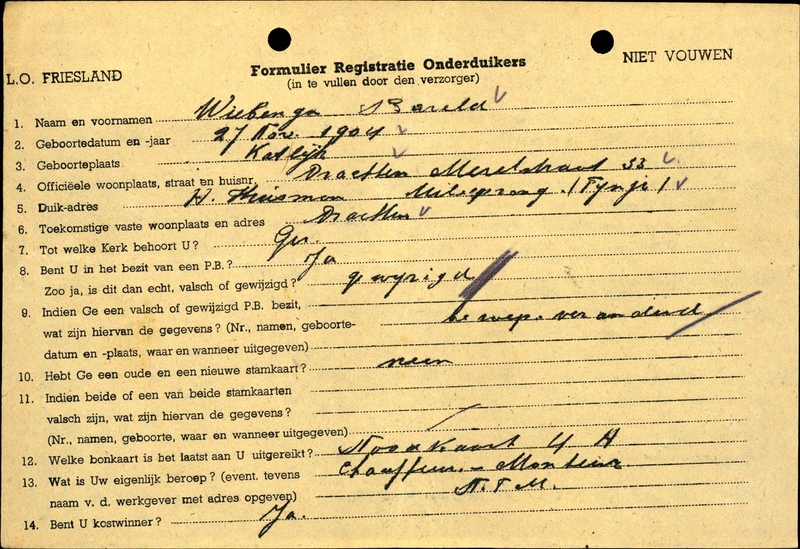 L.O. FRIESLAND
Formulier Registratie Onderduikers
(in te vullen door den verzorger)
NIET VOUWEN
1. Naam en voornamen Wiebenga Bareld
2. Geboortedatum en -jaar 27 Nov. 1904
3. Geboorteplaats Katlijk
4. Officiëele woonplaats, straat en huisnr. Drachten Merelstraat 33
5. Duik-adres H. Huisman (Tynje)
6. Toekomstige vaste woonplaats en adres Drachten
7. Tot welke Kerk behoort U? Ger.
8. Bent U in het bezit van een P.B.? Ja
Zoo ja, is dit dan echt, valsch of gewijzigd? gewyzigd
9. Indien Ge een valsch of gewijzigd P.B. bezit,
wat zijn hiervan de gegevens? (Nr., namen, geboorte- beroep. veranderd
datum en -plaats, waar en wanneer uitgegeven)
10. Hebt Ge een oude en een nieuwe stamkaart? neen
11. Indien beide of een van beide stamkaarten
valsch zijn, wat zijn hiervan de gegevens?
(Nr., namen, geboorte, waar en wanneer uitgegeven)
12. Welke bonkaart is het laatst aan U uitgereikt? Noodkaart 4 H
13. Wat is Uw eigenlijk beroep? (event. tevens Chauffeur - Monteur
naam v. d. werkgever met adres opgeven) N.T.M.
14. Bent U kostwinner? Ja.